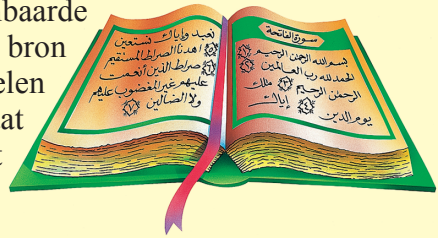 nbaarde
bron
elen
at
t
سورة الفاتحة
بسم الله الرحمن الرحيم ١
الحمد لله رب العالمين ٢
الرحمن الرحيم ٣ ملك
يوم الدين ٤ إياك
نعبد وإياك نستعين
٥ اهدنا الصراط المستقيم
٦ صراط الذين أنعمت
عليهم غير المغضوب عليهم
ولا الضالين ٧